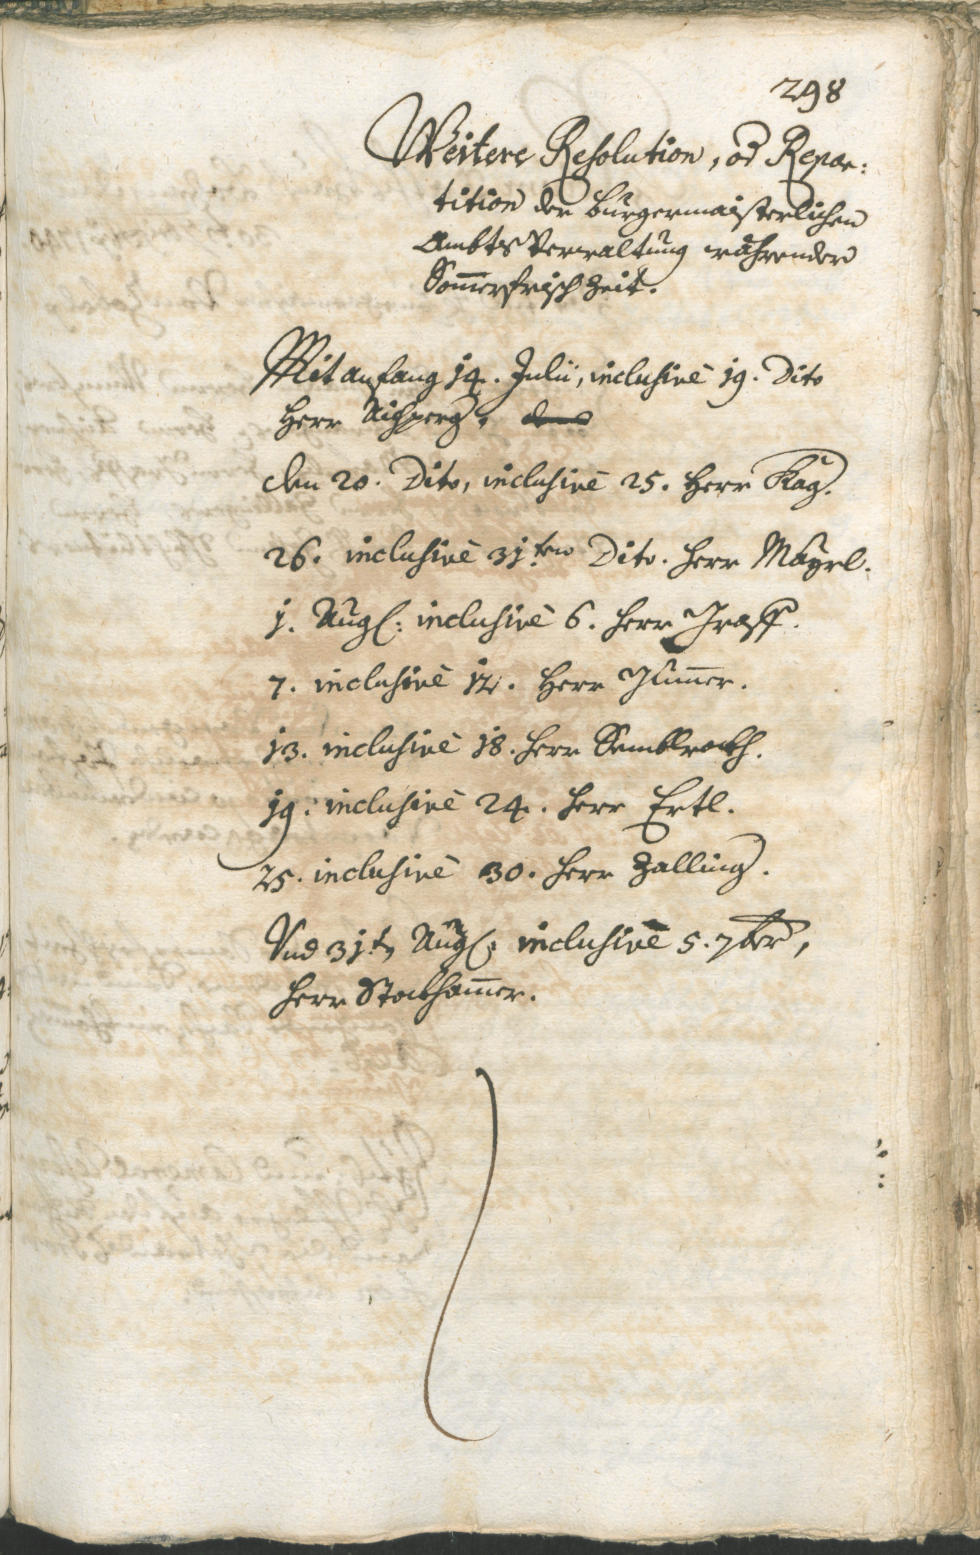 298
Weitere Resolution, od Repar:
tition der burgermaisterlichen
Ambts Verwaltung wåhrender
Som̅erfrisch Zeit.
Mit anfang 14. Julii, inclusivè 19. Dito
Herr Aichperg.
den 20. Dito, inclusivè 25. Herr Kag.
26. inclusivè 31ten Dito. Herr Mayrl.
1. Aug: inclusivè 6. Herr Graff.
7. inclusivè 12. Herr
13. inclusivè 18. Herr Semblrockh.
19. inclusivè 24. Herr Ertl.
25. inclusivè 30. Herr Zalling.
Vnd 31t Aug: inclusivè 5. 7ber,
Herr Stockham̅er.